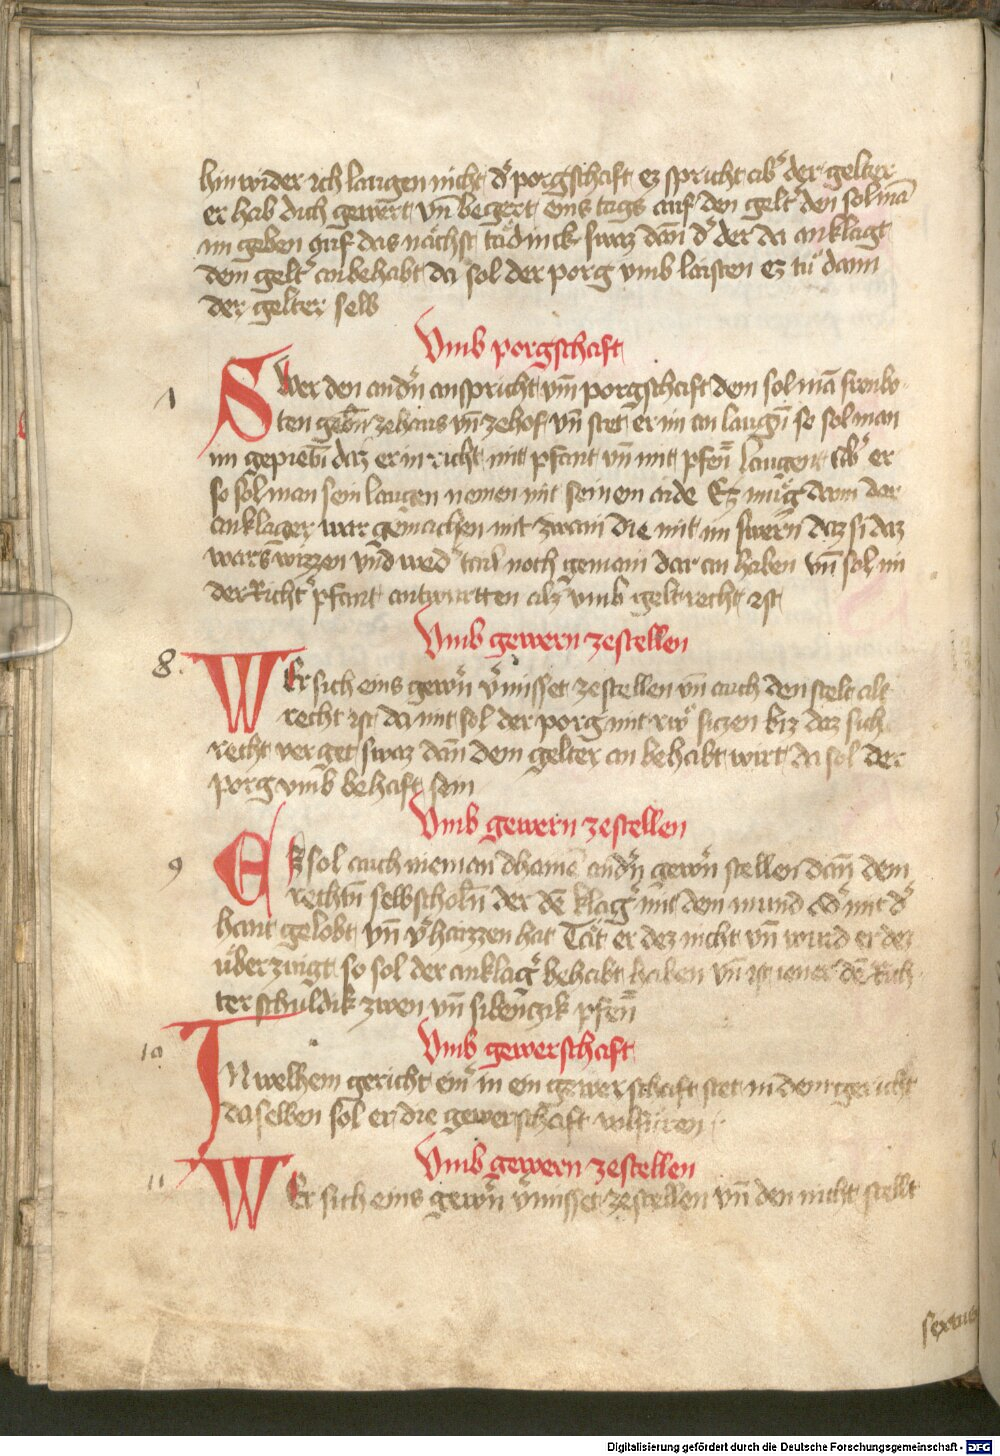 hinwider ich laugen nicht d' porgschaft ez spricht ab' der gelter
er hab dich gewert vn̄ begert eins tags auf den gelt' den sol mā
im geben auf das nächst tädinck swaz dān d' der da anklagt
dem gelt' anbehabt da sol der porg vmb laisten ez tu dann
der gelter selb
Vmb porgschaft
Swer den and'n anspricht vm̄ porgschaft dem sol mā fronbo
ten gebn̄ ze haus vn̄ ze hof vn̄ stet er im an laugn̄ so sol man
im gepietn̄ daz er in richt mit pfant vn̄ mit pfen̄ Laugent ab' er
so sol man sein laugen nemen mit seinem aide Ez müg dann der
anklager war gemachen mit zwain die mit im swern daz si daz
wars wizzen vnd wed' tail noch gemain dar an haben vn̄ sol im
der Richt' pfant antwurtten alz vmb gelt recht ist
Vmb gewern zestellen
8 WEr sich eins gew'n v'misset ze stellen vn̄ auch den stelt alt
recht ist da mit sol der porg mit rw siczen biz daz sich
recht ver get swaz dān dem gelter an behabt wirt da sol der
porg vmb behaft sein
Vmb gewern zestellen
9 Ez sol auch nieman dhainē and'n gew'n stellen dān dem
rechtn̄ selbscholn̄ der dē klag' mit dem mund od' mit d'
hant gelobt vn̄ v'haizzen hat Tät er dez nicht vn̄ wurd er dez
überzeugt so sol der anklag' behabt haben vn̄ ist iener dē Rich
ter schuldik zwen vn̄ sibenczik pfen̄
Vmb gewerschaft
10 In welhem gericht ein' in ein gewerschaft stet in dem gericht
daselben sol er die gewerschaft volfüren
Vmb gewern zestellen
11 WEr sich eins gew'n v'misset ze stellen vn̄ den nicht stellt
Digitalisierung gefördert durch die Deutsche Forschungsgemeinschaft - DFG